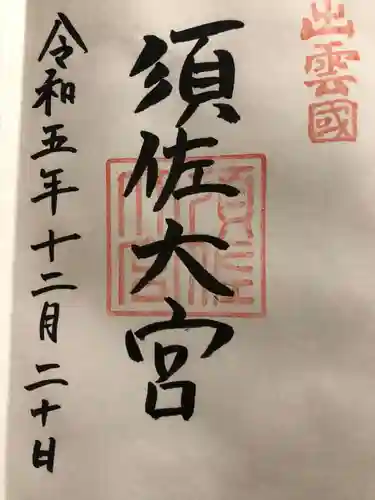 出雲國
須佐大宮
須佐大宮
令和五年十二月二十日